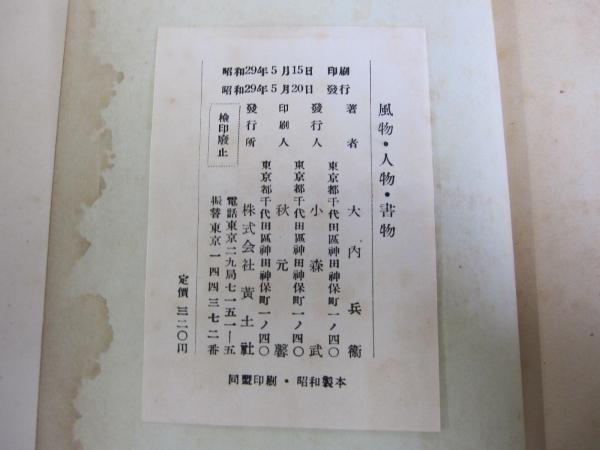 風物・人物・書物
昭和29年5月15日 印刷
昭和29年5月20日 發行
著者 大內兵衞
東京都千代田區神田神保町一ノ四〇
發行人 小森武
東京都千代田區神田神保町一ノ四〇
印刷人 秋元馨
東京都千代田區神田神保町一ノ四〇
發行所 株式会社 黃土社
電話東京二九局七一五一—五
振替東京一四四三七二番
檢印廢止
定價 三二〇円
同盟印刷・昭和製本